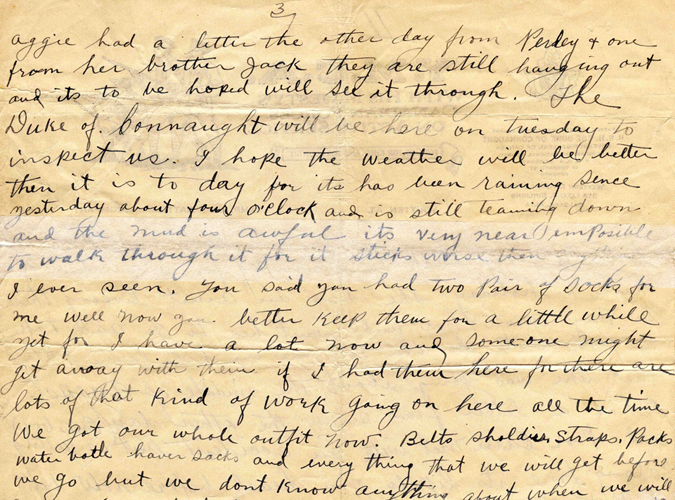 3
Aggie had a letter the other day from Perley & one
from her brother Jack they are still hanging out
and its to be hoped will see it through. The
Duke of. Connaught will be here on tuesday to
inspect us. I hope the weather will be better
then it is to day for its has been raining sence
yesterday about four O'clock and is still teaming down
and the mud is awful its very near imposible
to walk through it for it sticks worse then anything
I ever seen. You said you had two Pair of Socks for
me well now you better keep them for a little while
yet for I have a lot now and some-one might
get away with them if I had them here for there are
lots of that kind of work going on here all the time
We got our whole outfit now. Belts sholdier Straps, Packs
water bottle haver sacks and every thing that we will get before
we go but we dont know anything about when we will